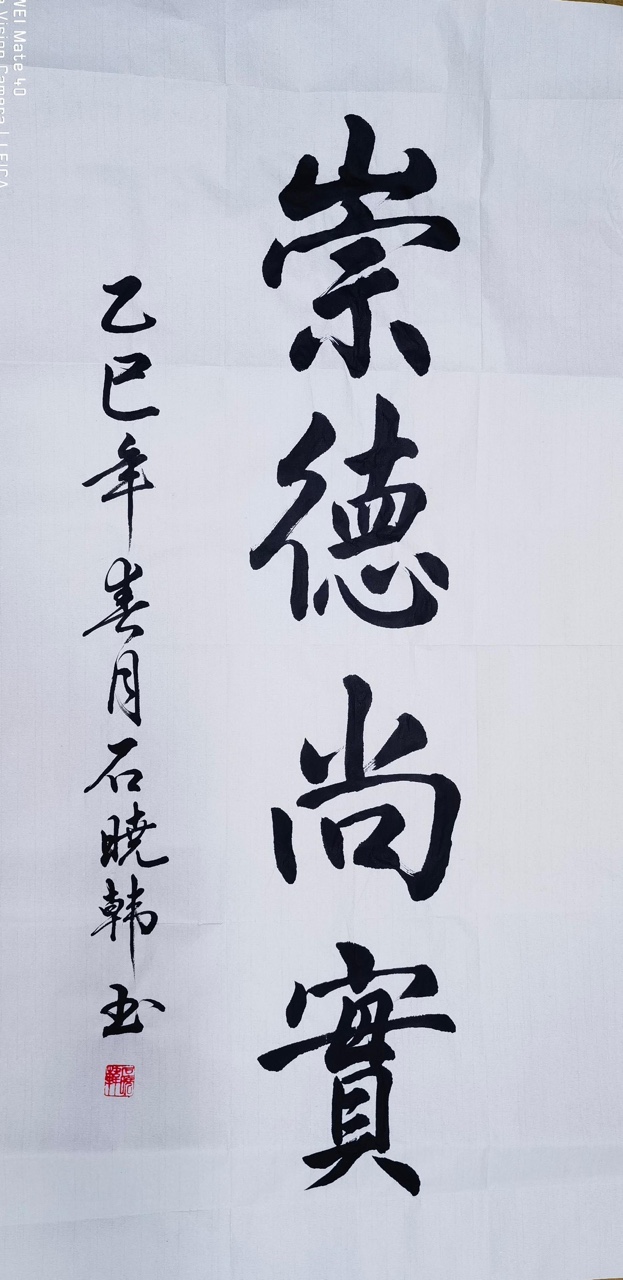 崇德尚實
乙巳年春月石曉韩玉
WEI Mate 40
Vision Camera | LEICA